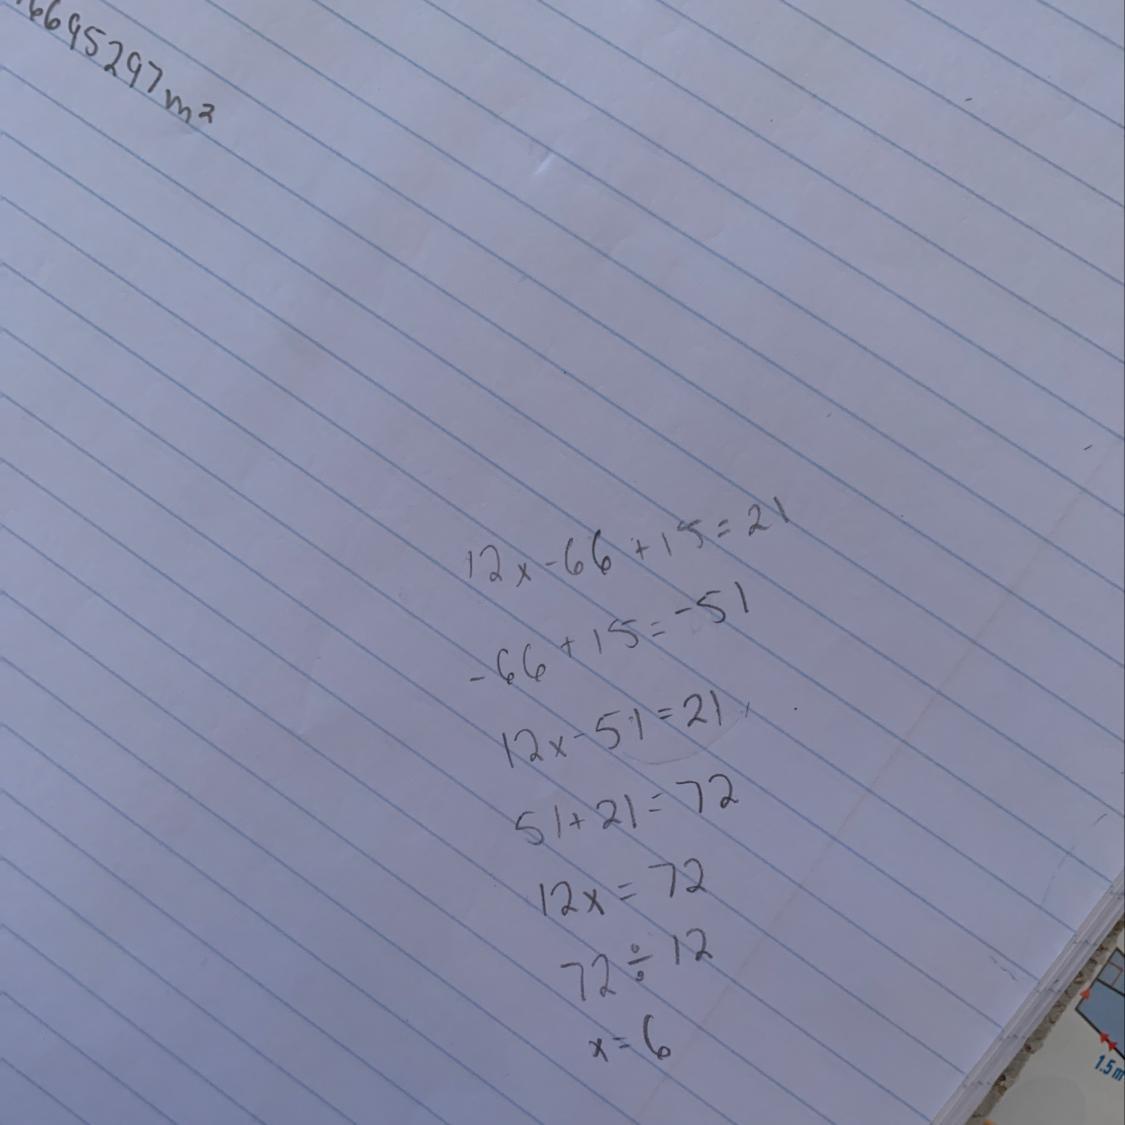 6695297m²
12x-66+15=21
-66+15=-51
12x-51=21
51+21=72
12x=72
72÷12
x=6
1.5 m